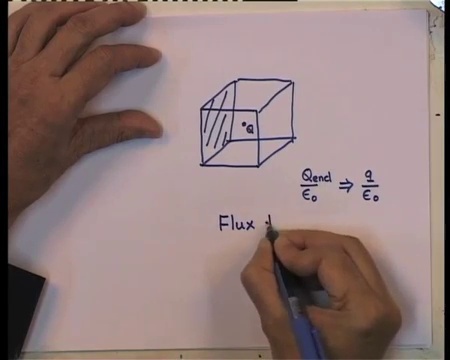 Q
Qencl/ε₀ ⇒ q/ε₀
Flux